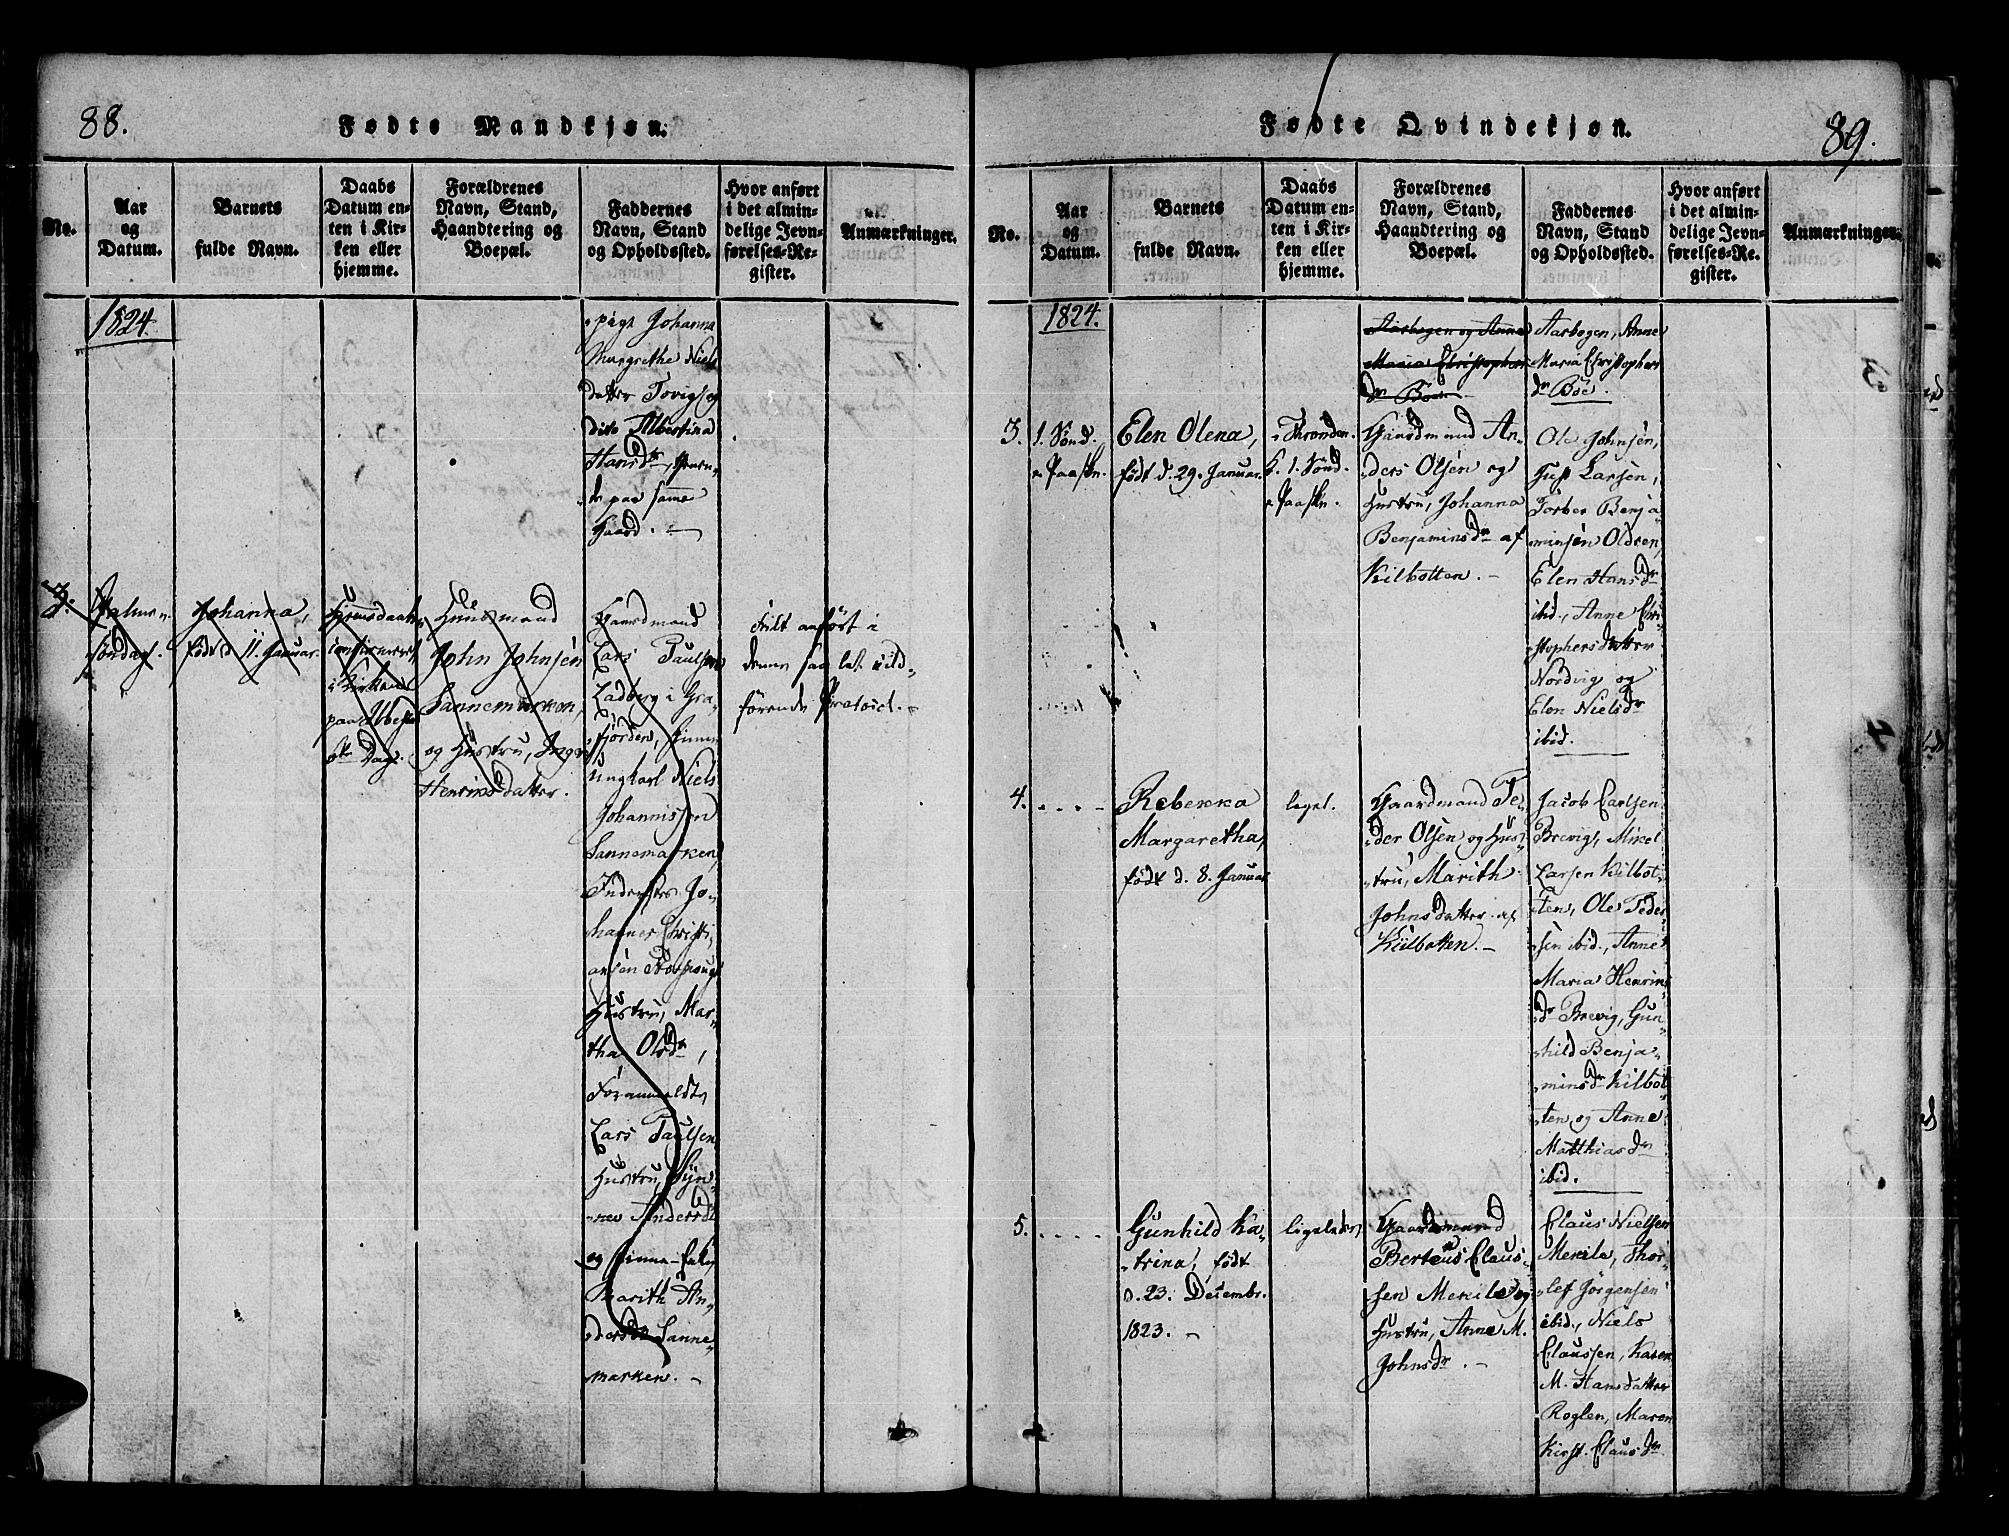 88.
Fødte Mandkjøn.
No.
Aar
og
Datum.
Barnets
fulde Navn.
Daabs
Datum en-
ten i Kir-
ken eller
hjemme.
Forældrenes
Navn, Stand,
Haandtering og
Boepæl.
Faddernes
Navn, Stand
og Opholdssted.
Hvor anført
i det almin-
delige Jevn-
førelses-Re-
gister.
Anmærkninger.
1824.
Johanna
Margrethe Niels
datter Tovig og
dito Albertina
Hansdr,
paa samme
Gaard.
3.
Palme
søndag.
Johanna,
født d. 11. Januar.
Hjemmedaab
confirmeret
i Kirken
paa
Dag.
Huusmand
John Johnsen
Sannemarken,
og Hustru, Inger
Henriksdatter.
Gaardmand
Lars Paulsen
Ladberg i Gra-
fjorden,
Ungkarl Niels
Johannissen
Sannemarken,
Inderster Jo-
hannes Christi-
ansen
Hustru, Mar-
tha Olsdr,
Foranmeldte
Lars Paulsen
Hustru, Syn-
nev Andersdr
og Pinne-
Marith An-
dersdr Sanne-
marken.
feilt anført i
denne saa let vild-
førende Protocol.
89.
Fødte Qvindekjøn.
No.
Aar
og
Datum.
Barnets
fulde Navn.
Daabs
Datum en-
ten i Kir-
ken eller
hjemme.
Forældrenes
Navn, Stand,
Haandtering og
Boepæl.
Faddernes
Navn, Stand
og Opholdssted.
Hvor anført
i det almin-
delige Jevn-
førelses-Re-
gister.
Anmærkninger.
1824.
Aasbogen og Anne
Maria Christophers
dr Böe
Aasbogen, Anne
Maria Christophers
dr Böe.
3.
1. Sönd.
Paaskn.
Elen Olena,
født d. 29. Januar.
Thronden.
K. 1. Sönd.
Paaskn.
Gaardmand An-
ders Olsen og
Hustru, Johanna
Benjaminsdr af
Kilbotten.
Ole Johnsen,
Larsen,
Torber Benja-
minsen Oldren,
Elen Hansdr
ibid., Anne Chri-
stophersdatter
Nordvig og
Elen Nielsdr
ibid.
4.
Rebekka
Margaretha,
født d. 8. Januar
ligel.
Gaardmand Pe-
der Olsen og Hus-
tru, Marith
Johnsdatter af
Kiilbotten.
Jacob Carlsen
Brevig, Mikel
Larsen Kilbot-
ten, Ole Peder-
sen ibid., Anne
Maria Henriks
dr Brevig, Gun-
hild Benja-
minsdr Kilbot-
ten, og Anne
Matthiasdr
ibid.
5.
Gunhild Ka-
trina, født
d. 23. Decembr.
1823.
ligeledes
Gaardmand
Berteus Claus-
sen Mekile og
Hustru, Anne M.
Johnsdr.
Claus Nielsen
Mekile, Thor-
lef Jörgensen
ibid., Niels
Claussen, Karen
M. Hansdatter
Roglen, Maren
Kirst. Clausdr